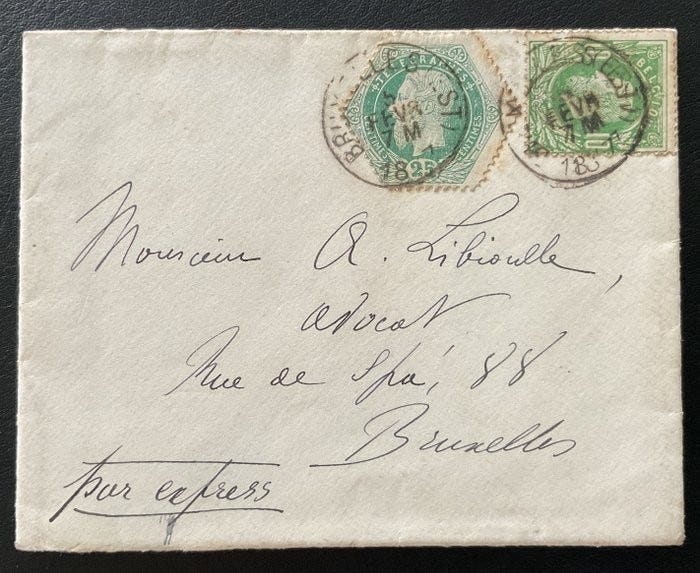 TELEGRAPHES
CENTIMES 25 CENTIMES
BRUXELLES (EST)
FEVR
7 M
BELGIQUE
10
FEVR
7 M
Monsieur A. Libioulle,
avocat
Rue de Spa, 88
Bruxelles
par express